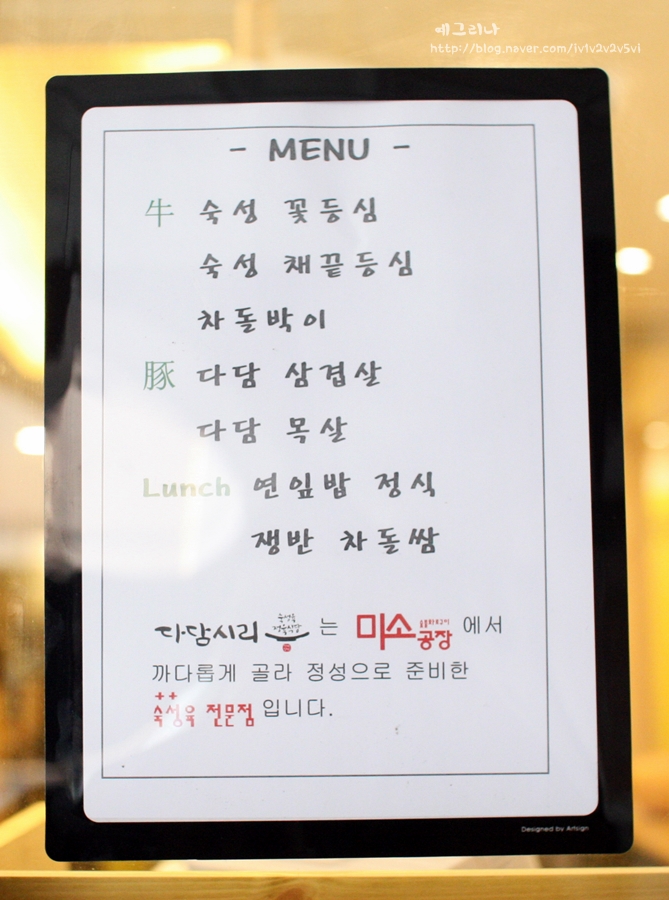 예그리나
http://blog.naver.com/jv1v2v2v5vl
- MENU -
牛 숙성 꽃등심
숙성 채끝등심
차돌박이
豚 다담 삼겹살
다담 목살
Lunch 연잎밥 정식
쟁반 차돌쌈
다담시리 는 미소공장 에서
까다롭게 골라 정성으로 준비한
숙성육 전문점 입니다.
Designed by Artsign